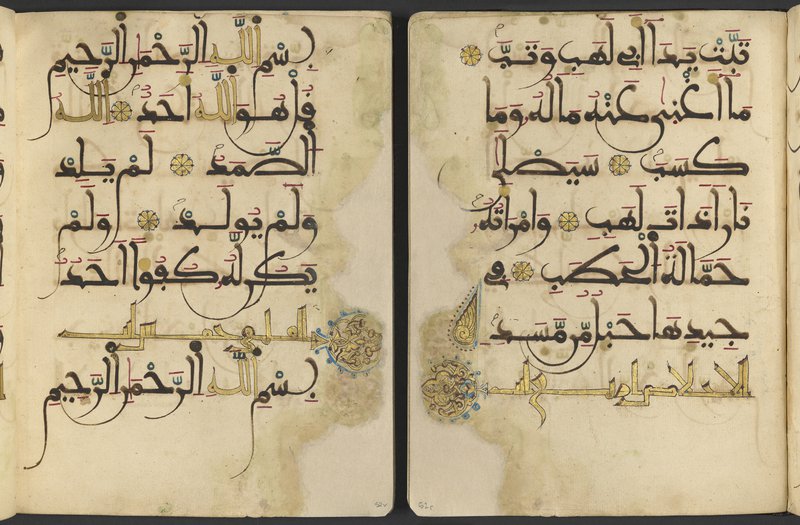 تَبَّتْ يَدَا أَبِي لَهَبٍ وَتَبَّ
مَا أَغْنَى عَنْهُ مَالُهُ وَمَا
كَسَبَ سَيَصْلَى
نَارًا ذَاتَ لَهَبٍ وَامْرَأَتُهُ
حَمَّالَةُ الْحَطَبِ فِي
جِيدِهَا حَبْلٌ مِّن مَّسَدٍ
الاخلاص
بِسْمِ اللَّهِ الرَّحْمَنِ الرَّحِيمِ
قُلْ هُوَ اللَّهُ أَحَدٌ اللَّهُ
الصَّمَدُ لَمْ يَلِدْ
وَلَمْ يُولَدْ وَلَمْ
يَكُن لَّهُ كُفُوًا أَحَدٌ
الفلق خمس ايات
بِسْمِ اللَّهِ الرَّحْمَنِ الرَّحِيمِ